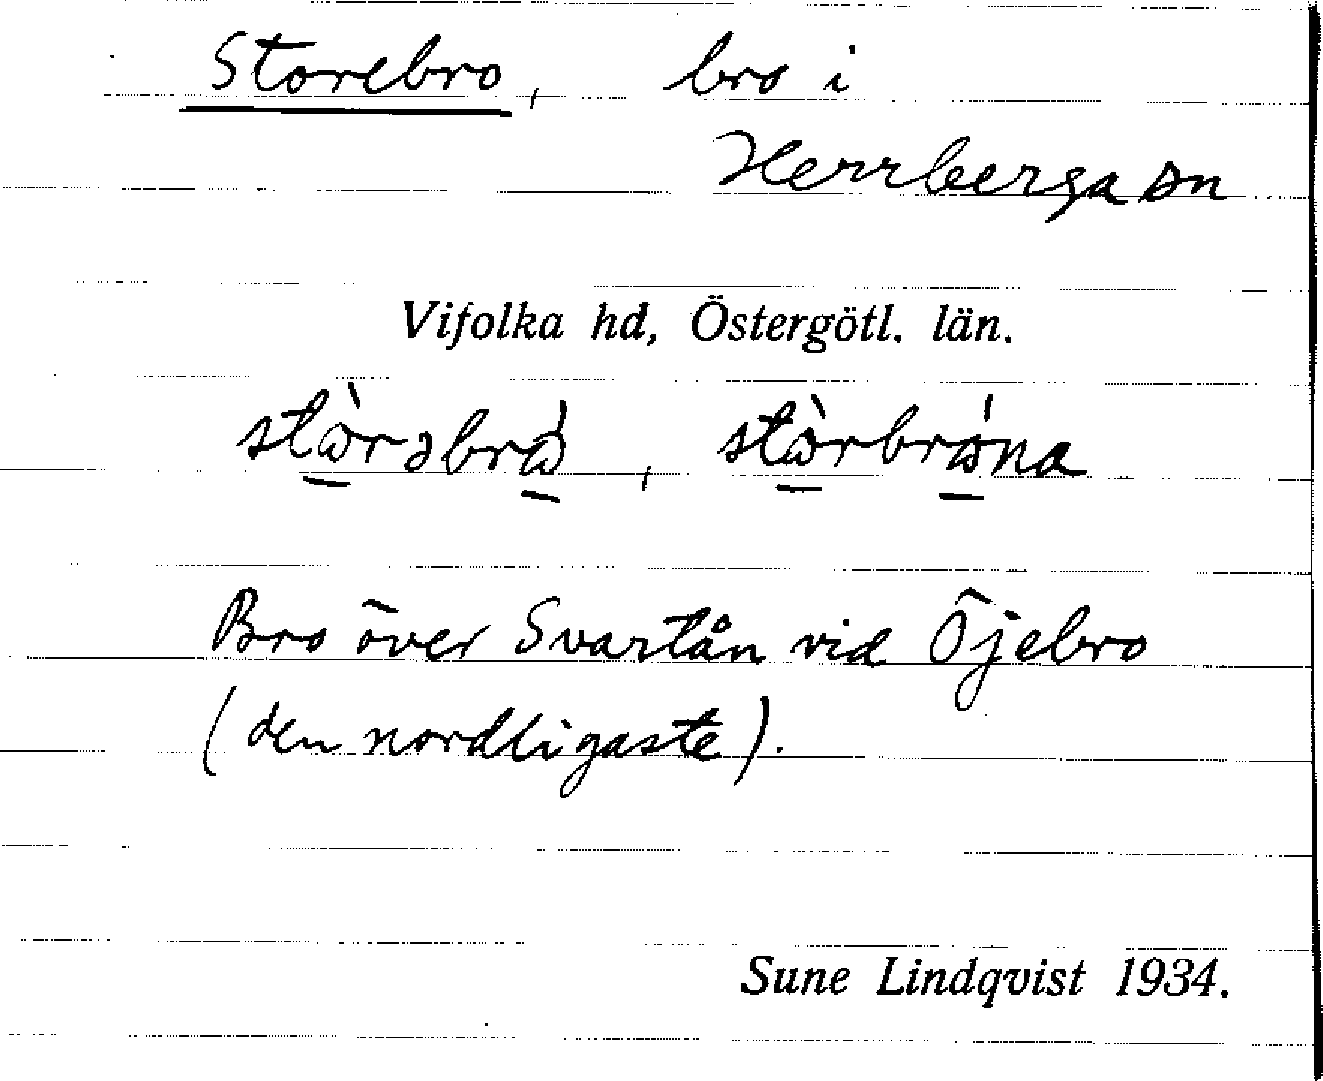 Storebro, bro i
Herrberga sn
Vifolka hd, Östergötl. län.
stὼrəbrώ, stὼrbrώna
Bro över Svartån vid Öjebro
(den nordligaste).
Sune Lindqvist 1934.